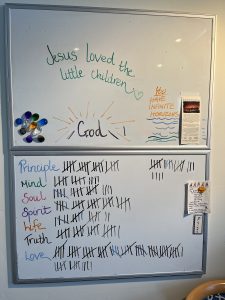 Jesus loved the
little children
You
HAVE
INFINITE
HORIZONS
God
Principle
Mind
Soul
Spirit
Life
Truth
Love